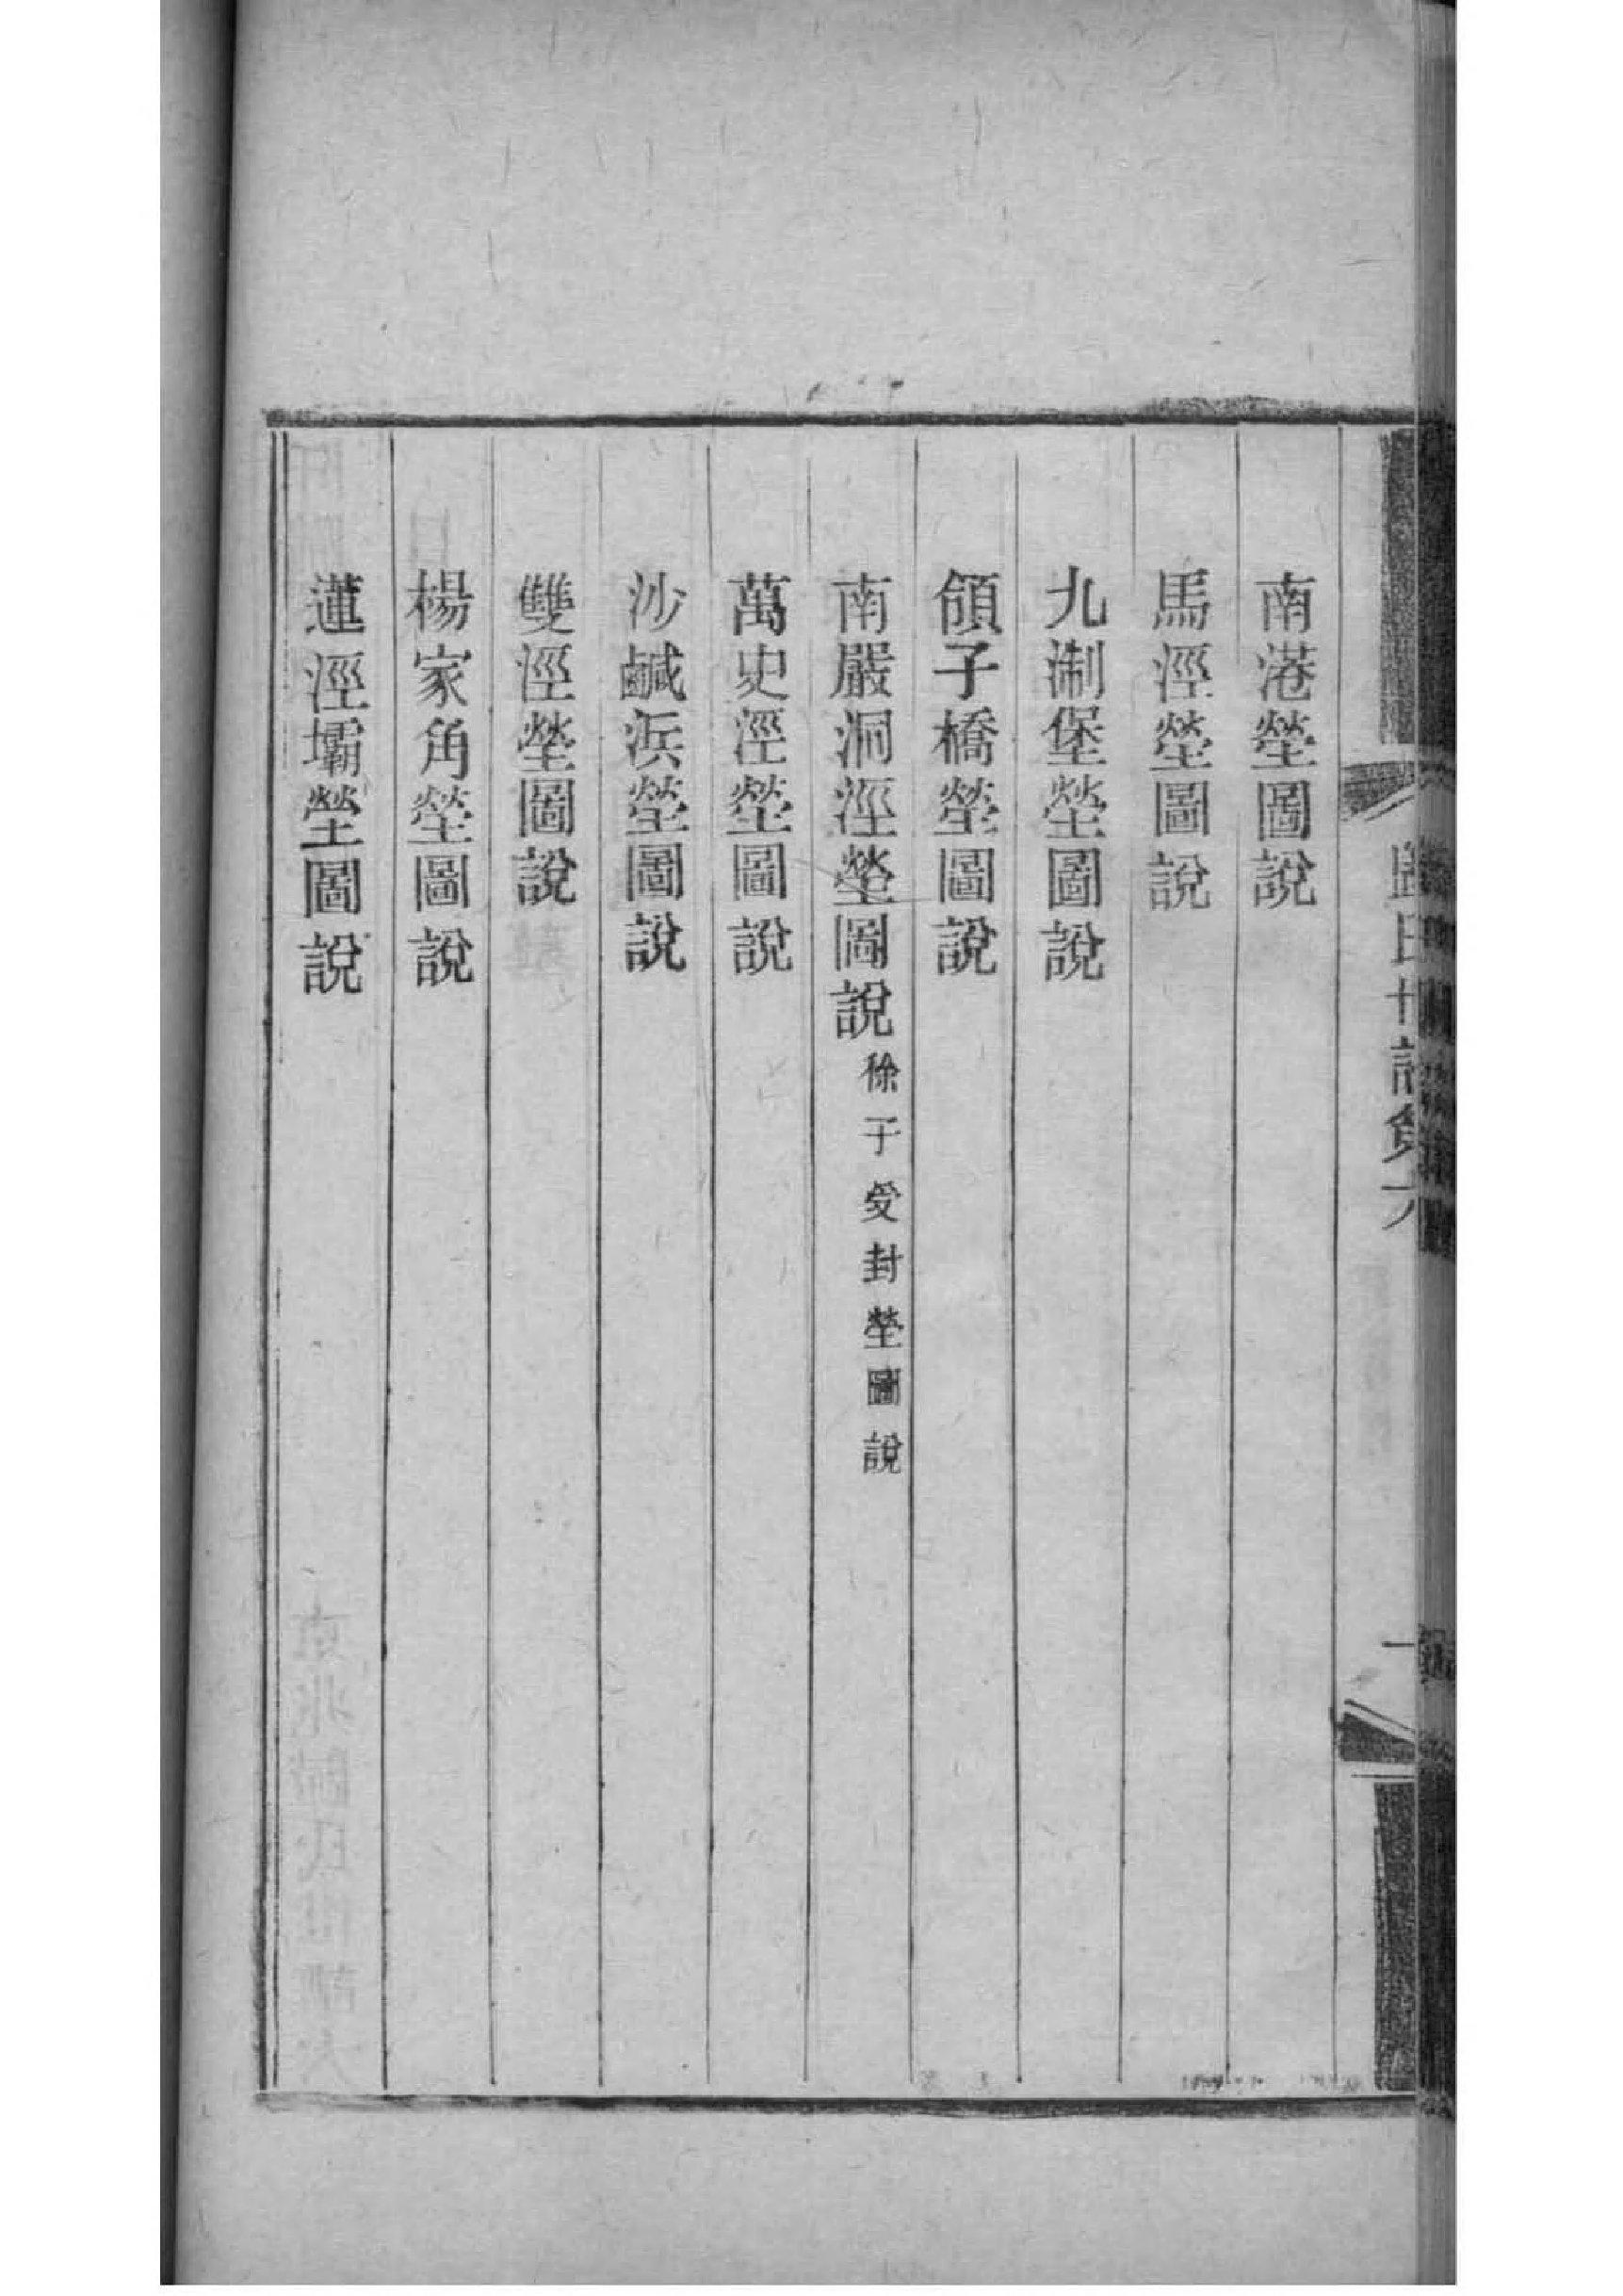 南港塋圖說
馬涇塋圖說
九淛堡塋圖說
領子橋塋圖說
南嚴洞涇塋圖說 徐于受封塋圖說
萬史涇塋圖說
沙鹹浜塋圖說
雙涇塋圖說
楊家角塋圖說
蓮涇壩塋圖說